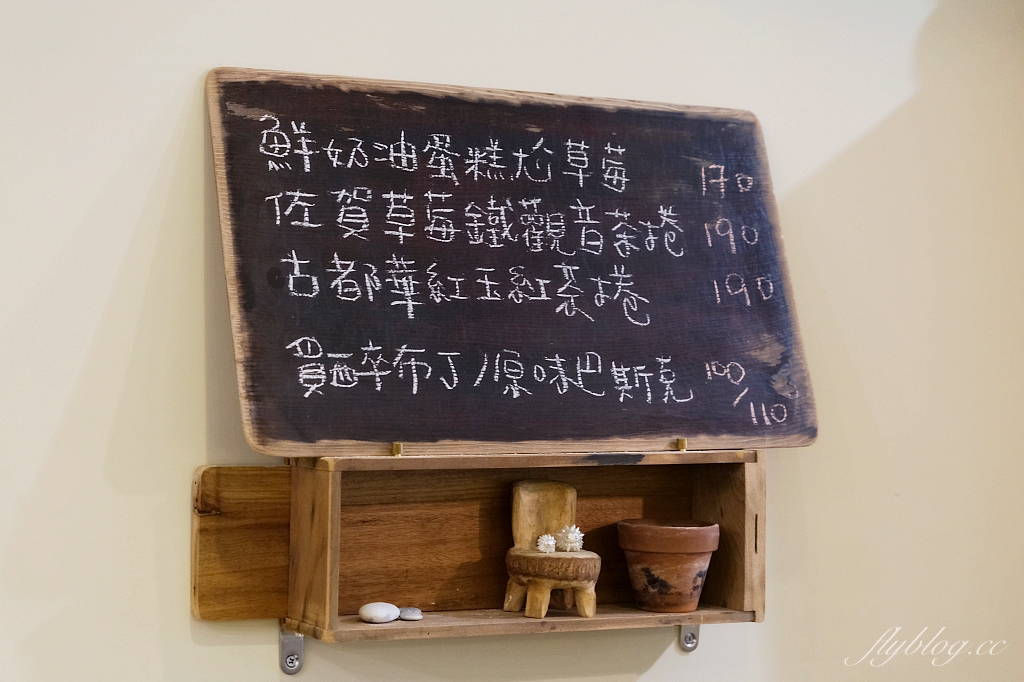 鮮奶油蛋糕尬草莓 170
佐賀草莓鐵觀音茶捲 190
古都華紅玉紅茶捲 190
買醉布丁/原味巴斯克 100/110
flyblog.cc